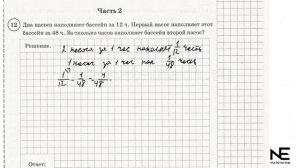 Часть 2
12 Два насоса наполняют бассейн за 12 ч. Первый насос наполняет этот
бассейн за 48 ч. За сколько часов наполняет бассейн второй насос?
Решение.
2 насоса за 1 час наполняют 1/12 часть
1 насос за 1 час нап 1/48 часть
1/12 - 1/48 = 4/48 -
NE